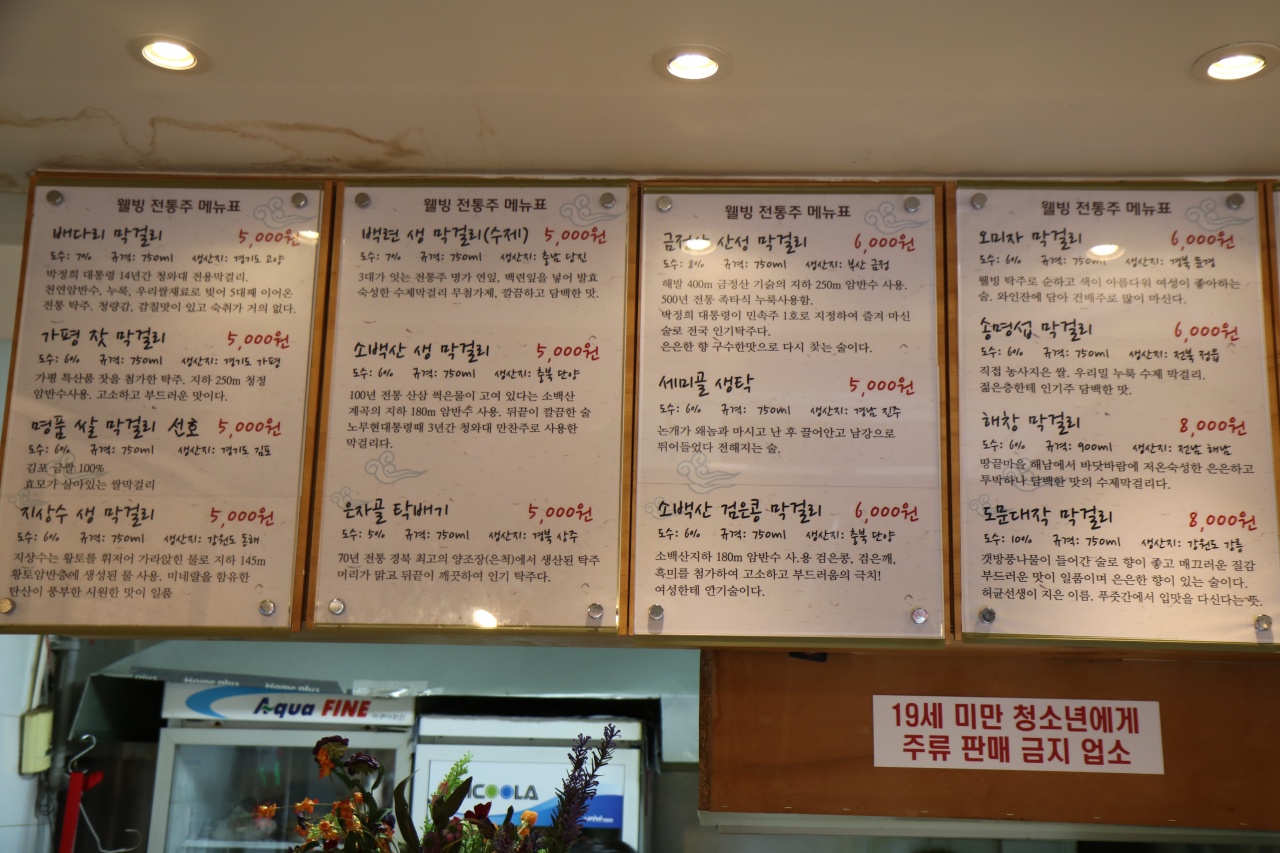 웰빙 전통주 메뉴표
배다리 막걸리 5,000원
도수: 7% 규격: 750ml 생산지: 경기도 고양
박정희 대통령 14년간 청와대 전용막걸리.
천연암반수, 누룩, 우리쌀재료로 빚어 5대째 이어온
전통 탁주. 청량감, 감칠맛이 있고 숙취가 거의 없다.
가평 잣 막걸리 5,000원
도수: 6% 규격: 750ml 생산지: 경기도 가평
가평 특산품 잣을 첨가한 탁주. 지하 250m 청정
암반수사용. 고소하고 부드러운 맛이다.
명품 쌀 막걸리 선호 5,000원
도수: 6% 규격: 750ml 생산지: 경기도 김포
김포 금쌀 100%
효모가 살아있는 쌀막걸리
지상수 생 막걸리 5,000원
도수: 6% 규격: 750ml 생산지: 강원도 동해
지상수는 황토를 휘저어 가라앉힌 물로 지하 145m
황토암반층에 생성된 물 사용. 미네랄을 함유한
탄산이 풍부한 시원한 맛이 일품
웰빙 전통주 메뉴표
백련 생 막걸리(수제) 5,000원
도수: 7% 규격: 750ml 생산지: 충남 당진
3대가 잇는 전통주 명가 연잎, 백련잎을 넣어 발효
숙성한 수제막걸리 무첨가제, 깔끔하고 담백한 맛.
소백산 생 막걸리 5,000원
도수: 6% 규격: 750ml 생산지: 충북 단양
100년 전통 산삼 썩은물이 고여 있다는 소백산
계곡의 지하 180m 암반수 사용. 뒤끝이 깔끔한 술
노무현대통령때 3년간 청와대 만찬주로 사용한
막걸리다.
은자골 탁배기 5,000원
도수: 5% 규격: 750ml 생산지: 경북 상주
70년 전통 경북 최고의 양조장(은척)에서 생산된 탁주
머리가 맑고 뒤끝이 깨끗하여 인기 탁주다.
웰빙 전통주 메뉴표
금정산 산성 막걸리 6,000원
도수: 8% 규격: 750ml 생산지: 부산 금정
해발 400m 금정산 기슭의 지하 250m 암반수 사용.
500년 전통 족타식 누룩사용함.
박정희 대통령이 민속주 1호로 지정하여 즐겨 마신
술로 전국 인기탁주다.
은은한 향 구수한맛으로 다시 찾는 술이다.
세미골 생탁 5,000원
도수: 6% 규격: 750ml 생산지: 경남 진주
논개가 왜놈과 마시고 난 후 끌어안고 남강으로
뛰어들었다 전해지는 술.
소백산 검은콩 막걸리 6,000원
도수: 6% 규격: 750ml 생산지: 충북 단양
소백산지하 180m 암반수 사.용 검은콩, 검은깨,
흑미를 첨가하여 고소하고 부드러움의 극치!
여성한테 안기술이다.
웰빙 전통주 메뉴표
오미자 막걸리 6,000원
도수: 6% 규격: 750ml 생산지: 경북 문경
웰빙 탁주로 순하고 색이 아름다워 여성이 좋아하는
술. 와인잔에 담아 건배주로 많이 마신다.
송명섭 막걸리 6,000원
도수: 6% 규격: 750ml 생산지: 전북 정읍
직접 농사지은 쌀. 우리밀 누룩 수제 막걸리.
젊은층한테 인기주 담백한 맛.
해창 막걸리 8,000원
도수: 6% 규격: 900ml 생산지: 전남 해남
땅끝마을 해남에서 바닷바람에 저온숙성한 은은하고
투박하나 담백한 맛의 수제막걸리다.
도문대작 막걸리 8,000원
도수: 10% 규격: 750ml 생산지: 강원도 강릉
갯방풍나물이 들어간 술로 향이 좋고 매끄러운 질감
부드러운 맛이 일품이며 은은한 향이 있는 술이다.
허균선생이 지은 이름. 푸줏간에서 입맛을 다신다는 뜻.
19세 미만 청소년에게
주류 판매 금지 업소
Home plus Home plus
Aqua FINE
COOLA